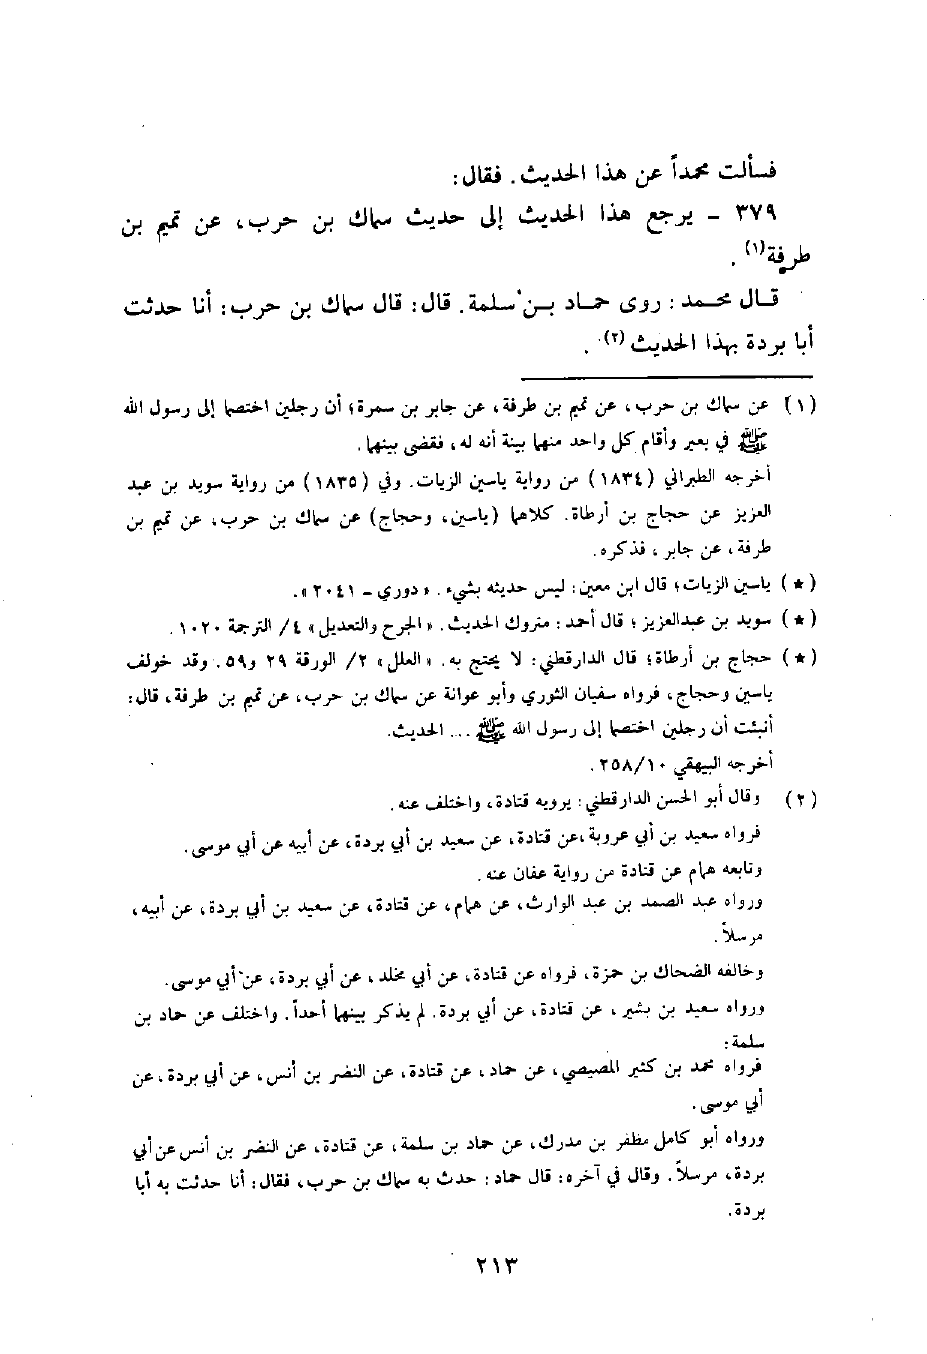 فسألت محمداً عن هذا الحديث. فقال:
٣٧٩ - يرجع هذا الحديث إلى حديث سماك بن حرب، عن تميم بن
طرفة(١).
قال محمد: روى حماد بن سلمة. قال: قال سماك بن حرب: أنا حدثت
أبا بردة بهذا الحديث(٢).
(١) عن سماك بن حرب، عن تميم بن طرفة، عن جابر بن سمرة؛ أن رجلين اختصما إلى رسول الله
ﷺ في بعير وأقام كل واحد منهما بينة أنه له، فقضى بينهما.
أخرجه الطبراني (١٨٣٤) من رواية ياسين الزيات. وفي (١٨٣٥) من رواية سويد بن عبد
العزيز عن حجاج بن أرطاة. كلاهما (ياسين، وحجاج) عن سماك بن حرب، عن تميم بن
طرفة، عن جابر، فذكره.
(★) ياسين الزيات؛ قال ابن معين: ليس حديثه بشيء. «دوري - ٢٠٤١».
(★) سويد بن عبدالعزيز؛ قال أحمد: متروك الحديث. «الجرح والتعديل» ٤/ الترجمة ١٠٢٠.
(★) حجاج بن أرطاة؛ قال الدارقطني: لا يحتج به. «العلل» ٢/ الورقة ٢٩ و٥٩. وقد خولف
ياسين وحجاج، فرواه سفيان الثوري وأبو عوانة عن سماك بن حرب، عن تميم بن طرفة، قال:
أنبئت أن رجلين اختصما إلى رسول الله ﷺ ... الحديث.
أخرجه البيهقي ٢٥٨/١٠.
(٢) وقال أبو الحسن الدارقطني: يرويه قتادة، واختلف عنه.
فرواه سعيد بن أبي عروبة، عن قتادة، عن سعيد بن أبي بردة، عن أبيه عن أبي موسى.
وتابعه همام عن قتادة من رواية عفان عنه.
ورواه عبد الصمد بن عبد الوارث، عن همام، عن قتادة، عن سعيد بن أبي بردة، عن أبيه،
مرسلاً.
وخالفه الضحاك بن حمزة، فرواه عن قتادة، عن أبي مخلد، عن أبي بردة، عن أبي موسى.
ورواه سعيد بن بشير، عن قتادة، عن أبي بردة. لم يذكر بينهما أحداً. واختلف عن حماد بن
سلمة:
فرواه محمد بن كثير المصيصي، عن حماد، عن قتادة، عن النضر بن أنس، عن أبي بردة، عن
أبي موسى.
ورواه أبو كامل مظفر بن مدرك، عن حماد بن سلمة، عن قتادة، عن النضر بن أنس عن أبي
بردة، مرسلاً. وقال في آخره: قال حماد: حدث به سماك بن حرب، فقال: أنا حدثت به أبا
بردة.
٢١٣